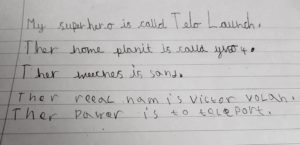 My superhero is calld Telo Launch.
Ther home planit is calld
Ther is sand.
Ther reeal nam is Victor Volan.
Ther Power is to teleport.